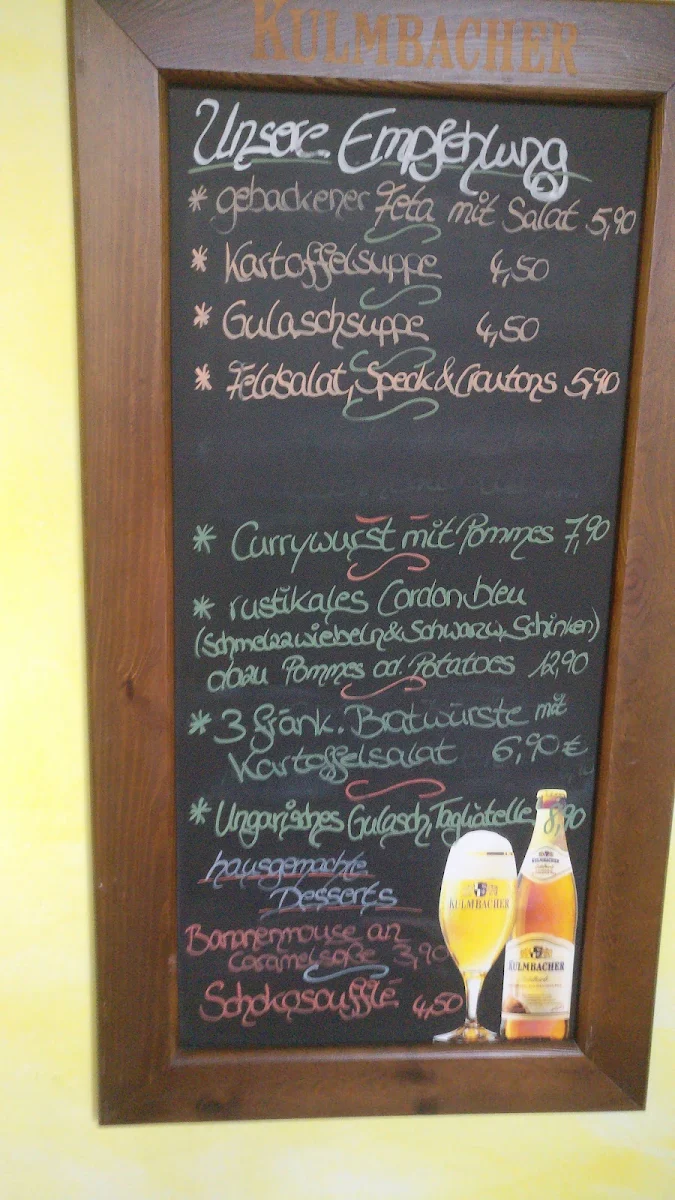 KULMBACHER
Unsere Empfehlung
* gebackener Feta mit Salat 5,90
* Kartoffelsuppe 4,50
* Gulaschsuppe 4,50
* Feldsalat, Speck & Croutons 5,90
* Currywurst mit Pommes 7,90
* rustikales Cordon bleu
(Schmelzzwiebeln & Schwarzw. Schinken)
dazu Pommes od. Potatoes 12,90
* 3 fränk. Bratwürste mit
Kartoffelsalat 6,90 €
* Ungarisches Gulasch, Tagliatelle 8,90
hausgemachte
Desserts
Bananenmouse an
Caramelsoße 3,90
Schokosoufflé 4,50
KULMBACHER
KULMBACHER